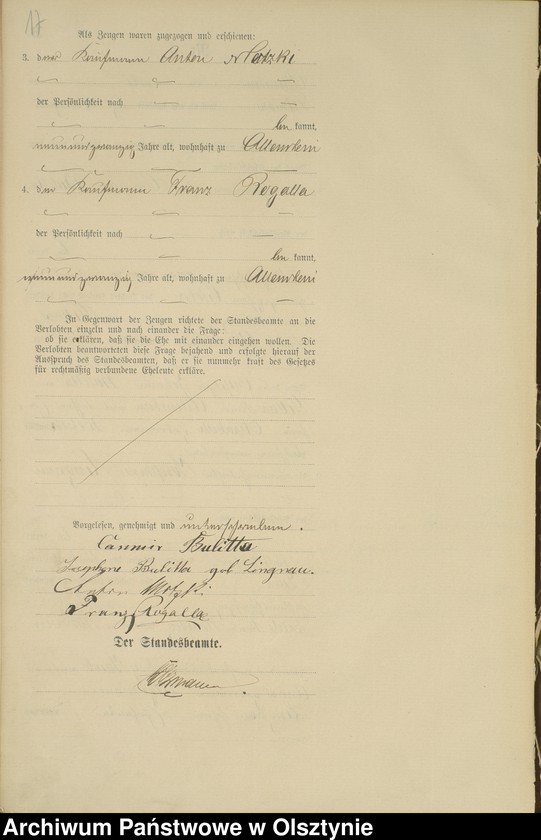 17
Als Zeugen waren zugezogen und erschienen:
3. der Kaufmann Anton
der Persönlichkeit nach
be kannt,
neunundzwanzig Jahre alt, wohnhaft zu Allenstein
4. der Kaufmann Franz Rogalla
der Persönlichkeit nach
be kannt,
neunundzwanzig Jahre alt, wohnhaft zu Allenstein
In Gegenwart der Zeugen richtete der Standesbeamte an die
Verlobten einzeln und nach einander die Frage:
ob sie erklären, daß sie die Ehe mit einander eingehen wollen. Die
Verlobten beantworteten diese Frage bejahend und erfolgte hierauf der
Ausspruch des Standesbeamten, daß er sie nunmehr kraft des Gesetzes
für rechtmäßig verbundene Eheleute erkläre.
Vorgelesen, genehmigt und unterschrieben.
Casimir Bulitta
Josephine Bulitta geb Lingnau.
Anton
Franz Rogalla
Der Standesbeamte.
Archiwum Państwowe w Olsztynie